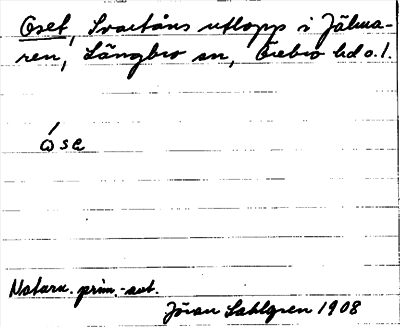 Oset, Svartåns utlopp i Jälma-
ren, Längbro sn, Örebro hd o. l.
ósе
Naturn. prim.-aut.
Jöran Sahlgren 1908